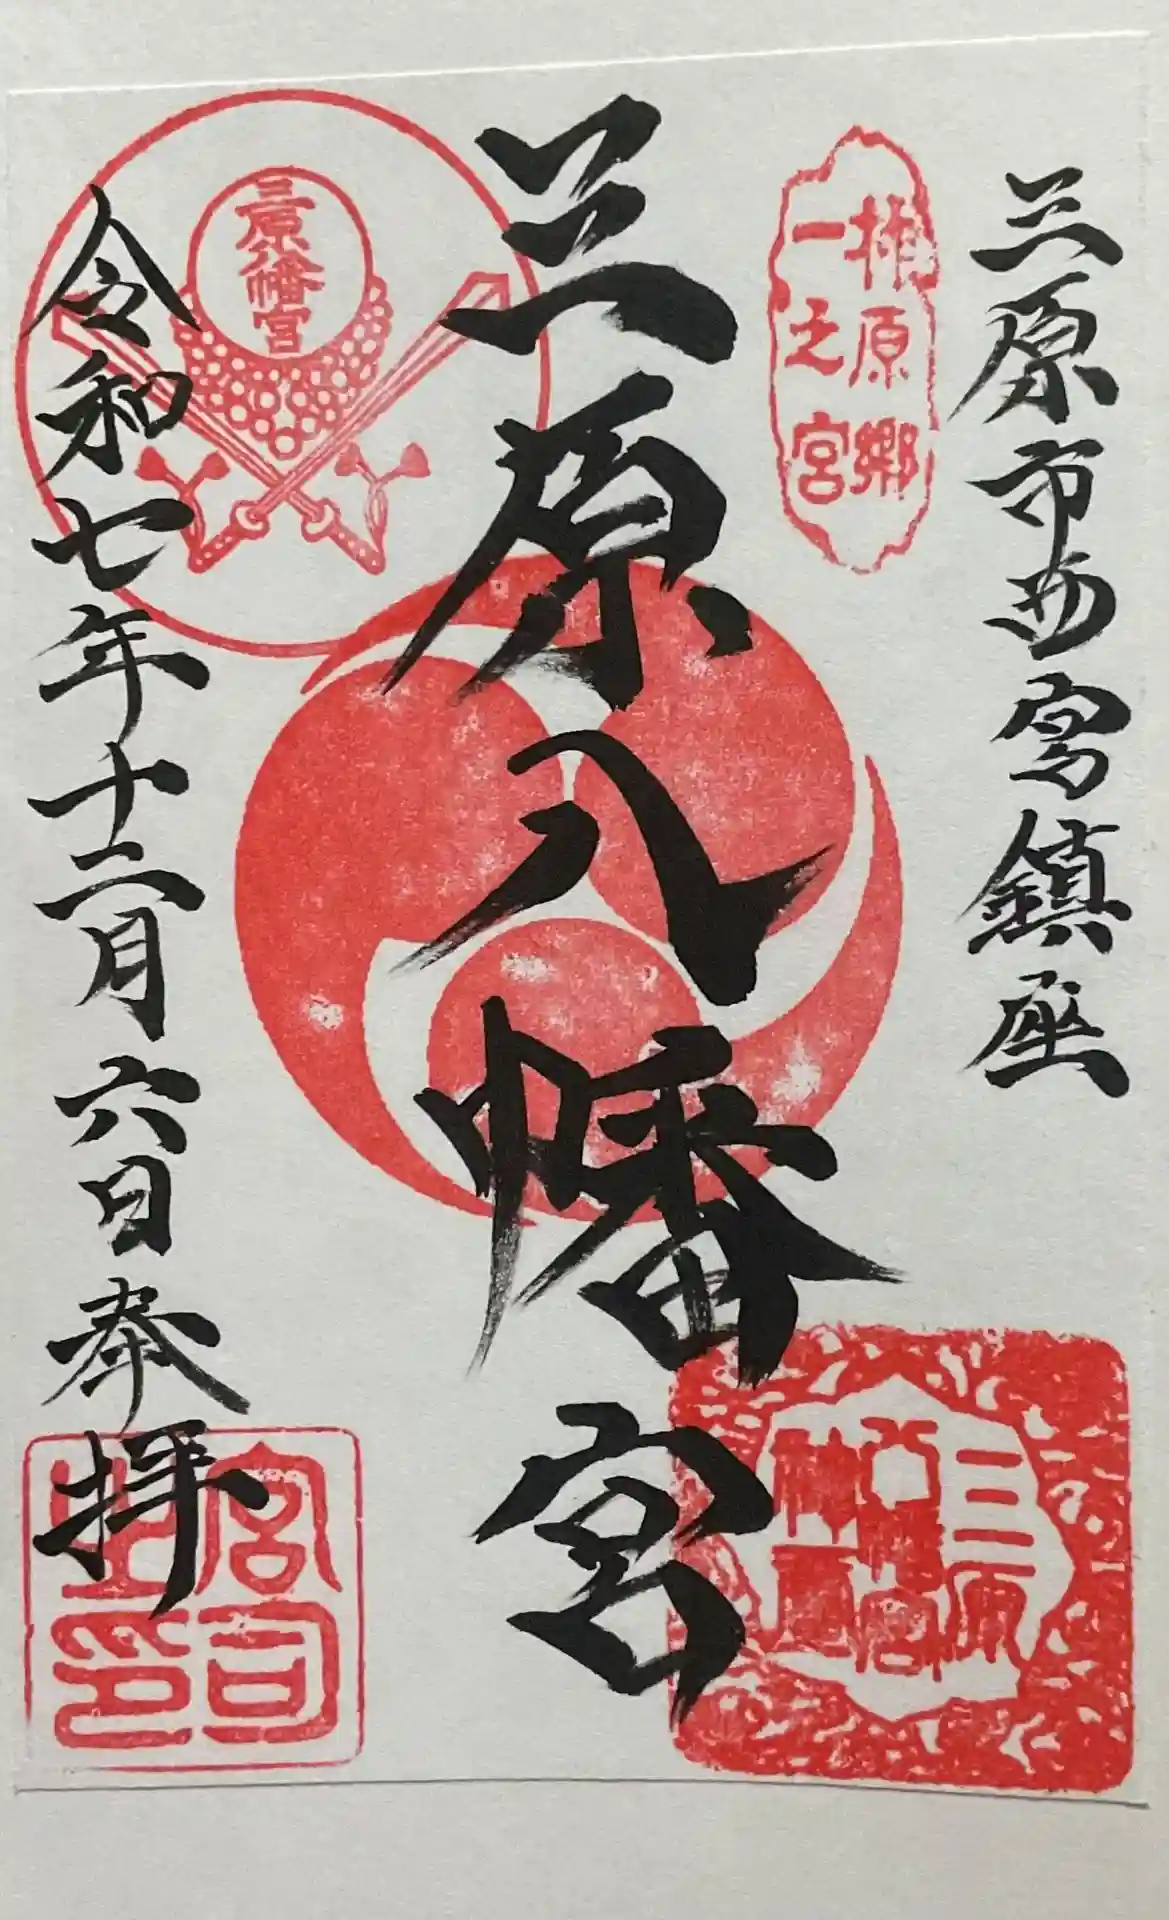 三原市西宮鎮座
柞原郷
一之宮
三原八幡宮
三原
八幡宮
神璽
三原八幡宮
令和七年十二月六日奉拝
宮司
之印